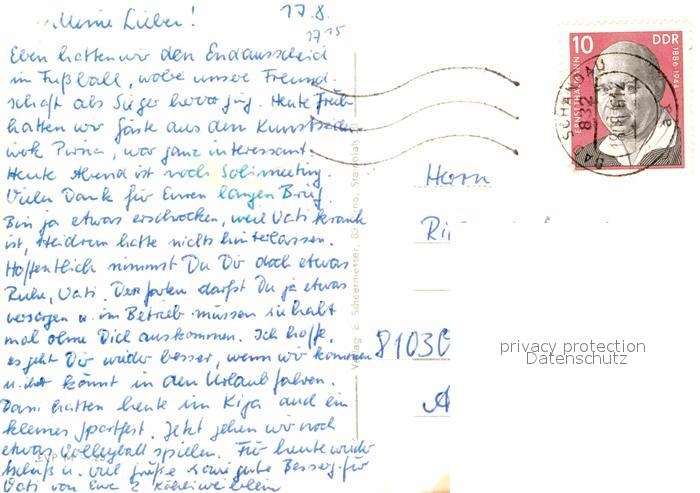 Meine Lieben!
17.8.
17 15
Eben hatten wir den Endausscheid
im Fußball, wobei unsere Freund-
schaft als Sieger hervorging. Heute früh
hatten wir Gäste aus dem Kunstseiden
werk Pirna, war ganz interessant.
Heute Abend ist noch Solimeeting.
Vielen Dank für Euren langen Brief.
Bin ja etwas erschrocken, weil Vati krank
ist, Heidrun hatte nichts hinterlassen.
Hoffentlich nimmst Du Dir doch etwas
Ruhe, Vati. Den Garten darfst Du ja etwas
versorgen u. im Betrieb müssen sie halt
mal ohne Dich auskommen. Ich hoffe,
es geht Dir wieder besser, wenn wir kommen
u. Ihr könnt in den Urlaub fahren.
Dani hatten heute im Kiga auch ein
kleines Sportfest. Jetzt gehen wir noch
etwas Volleyball spielen. Für heute wieder
Schluß u. viel Grüße sowie gute Besserg. für
Vati von Eure 2
Verlag E. Scheermesser, 83 Pirna,
10
DDR
ERNST THÄLMANN
1886-1944
SCHANDAU
832
Herrn
8103
A
privacy protection
Datenschutz